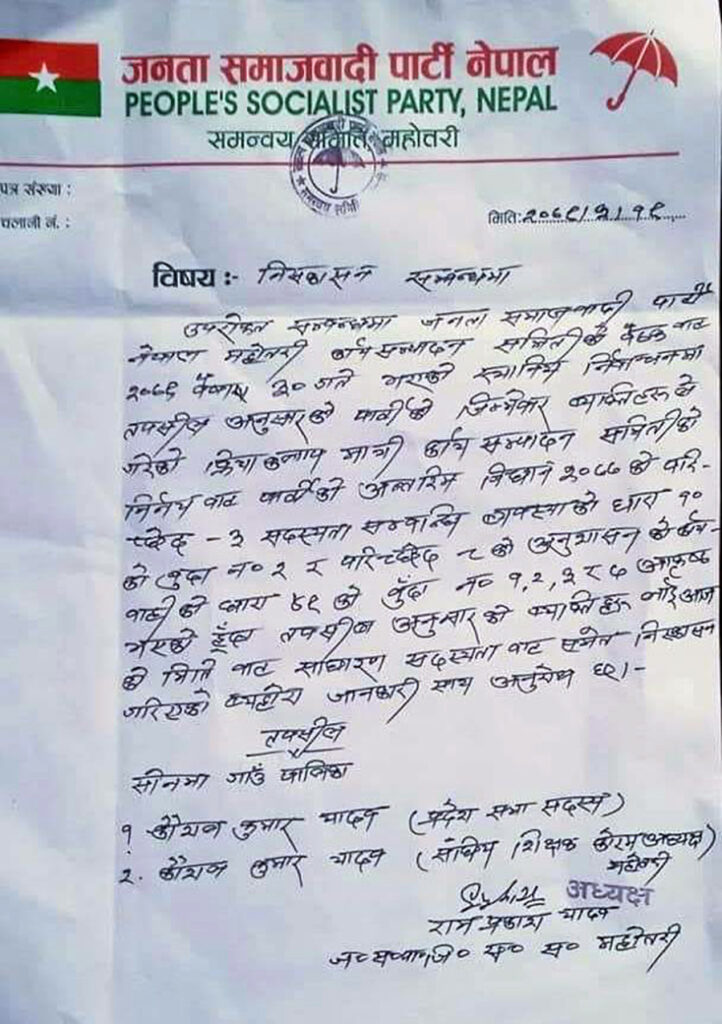 जनता समाजवादी पार्टी नेपाल
PEOPLE'S SOCIALIST PARTY, NEPAL
समन्वय समिति, महोत्तरी
पत्र संख्या :
चलानी नं. :
मिति:२०७९।२।१९
विषय :- निस्कासन सम्बन्धमा
उपरोक्त सम्बन्धमा जनता समाजवादी पार्टी
नेपाल महोत्तरी कार्य सम्पादन समितिको बैठक बाट
२०७९ बैशाख ३० गते भएको स्थानिय निर्वाचनमा
तपसील अनुसारको पार्टीको जिम्मेवार व्यक्तिहरुले
गरेको क्रिया कलाप माथी कार्य सम्पादन समितिको
निर्णय बाट पार्टीको अन्तरिम विधान २०७७ को परि-
च्छेद - ३ सदस्यता सम्बन्धि व्यवस्थाको धारा १०
को बुदा न० २ र परिच्छेद ८ को अनुशासन को कार्य-
वाही को धारा ४९ को बुँदा न० १,२,३ र ७ आकृष्ठ
भएको हुँदा तपसील अनुसार को व्यक्तिहरु लाई आज
को मिति बाट साधारण सदस्यता बाट समेत निस्कासन
गरिएको व्यहोरा जानकारी साथ अनुरोध छ।-
तपसील
सोनमा गाउँ पालिका
१ कुमार यादव (प्रदेश सभा सदस्य)
२. कुमार यादव (संघिय शिक्षक अध्यक्ष)
महोत्तरी
अध्यक्ष
राम प्रकाश यादव
स० स० महोत्तरी